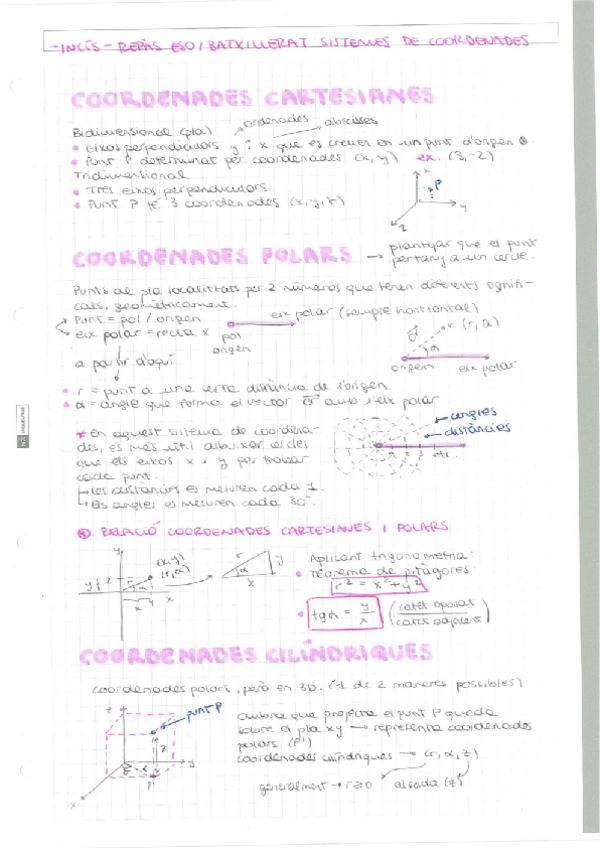 -INCÍS- REPÀS ESO/BATXILLERAT SISTEMES DE COORDENADES
COORDENADES CARTESIANES
ordenades abscisses
Bidimensional (pla)
• Eixos perpendiculars y i x que es creuen en un punt d'origen O.
• Punt P determinat per coordenades (x, y) ex. (3,-2)
Tridimensional
• Tres eixos perpendiculars.
• Punt P té 3 coordenades (x, y, z)
x
P
y
z
COORDENADES POLARS → plantejar que el punt
pertany a un cercle.
Punts al pla localitzats per 2 números que tenen diferents signifi-
cats, geomètricament.
Punt = pol / origen
eix polar = recta x
pol
origen
eix polar (sempre horitzontal)
r (r, α)
α
origen eix polar
a partir d'aquí
• r = punt a una certa distància de l'origen
• α = angle que forma el vector amb l'eix polar
* En aquest sistema de coordena-
des, és més útil dibuixar cercles
que els eixos x i y per trobar
cada punt.
↳ Les distàncies es mesuren cada 1.
↳ Els angles es mesuren cada 30°.
angles
distàncies
RELACIÓ COORDENADES CARTESIANES I POLARS
y
(x,y)
(r, α)
r
α
x
r
y
α
x
Aplicant trigonometria:
• Teorema de pitàgores:
r² = x² + y²
• tg α = y/x (catet oposat / catet adjacent)
COORDENADES CILÍNDRIQUES
coordenades polars, però en 3D. (1 de 2 maneres possibles)
punt P
z
y
x
P'
ombra que projecta el punt P queda
sobre el pla xy → representa coordenades
polars (P')
coordenades cilíndriques → (r, α, z)
generalment → r≥0 alçada (z)